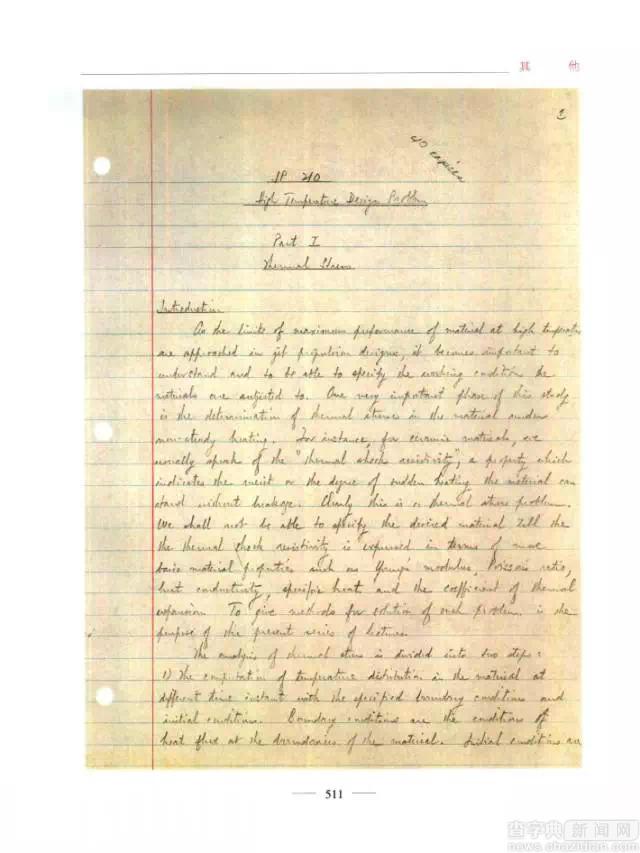 其 他
2
40 copies
JP 210
High Temperature Design Problem
Part I
Thermal Stress
Introduction
As the limits of maximum performance of material at high temperature
are approached in jet propulsion designs, it becomes important to
understand and to be able to specify the working condition the
materials are subjected to. One very important phase of this study
is the determination of thermal stress in the material under
non-steady heating. For instance, for ceramic materials, we
usually speak of the "thermal shock resistivity", a property which
indicates the merit or the degree of sudden heating the material can
stand without breakage. Clearly this is a thermal stress problem.
We shall not be able to specify the desired material till the
the thermal shock resistivity is expressed in terms of more
basic material properties such as Young's modulus, Poisson's ratio,
heat conductivity, specific heat, and the coefficient of thermal
expansion. To give methods for solution of such problem is the
purpose of the present series of lectures.
The analysis of thermal stress is divided into two steps:
1) The computation of temperature distribution in the material at
different time instant with the specified boundary conditions and
initial conditions. Boundary conditions are the conditions of
heat flux at the boundaries of the material. Initial conditions are
511
查字典 新闻网
news.chazidian.com